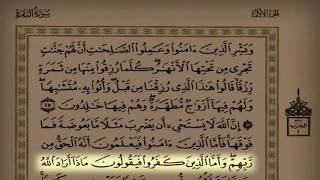 سورة البقرة
الجزء الأول
وَبَشِّرِ الَّذِينَ ءَامَنُوا وَعَمِلُوا الصَّالِحَاتِ أَنَّ لَهُمْ جَنَّاتٍ
تَجْرِي مِن تَحْتِهَا الْأَنْهَارُ كُلَّمَا رُزِقُوا مِنْهَا مِن ثَمَرَةٍ
رِّزْقًا قَالُوا هَذَا الَّذِي رُزِقْنَا مِن قَبْلُ وَأُتُوا بِهِ مُتَشَابِهًا
وَلَهُمْ فِيهَا أَزْوَاجٌ مُّطَهَّرَةٌ وَهُمْ فِيهَا خَالِدُونَ ٢٥
إِنَّ اللَّهَ لَا يَسْتَحْيِ أَن يَضْرِبَ مَثَلًا مَّا بَعُوضَةً فَمَا
فَوْقَهَا فَأَمَّا الَّذِينَ ءَامَنُوا فَيَعْلَمُونَ أَنَّهُ الْحَقُّ مِن
رَّبِّهِمْ وَأَمَّا الَّذِينَ كَفَرُوا فَيَقُولُونَ مَاذَا أَرَادَ اللَّهُ